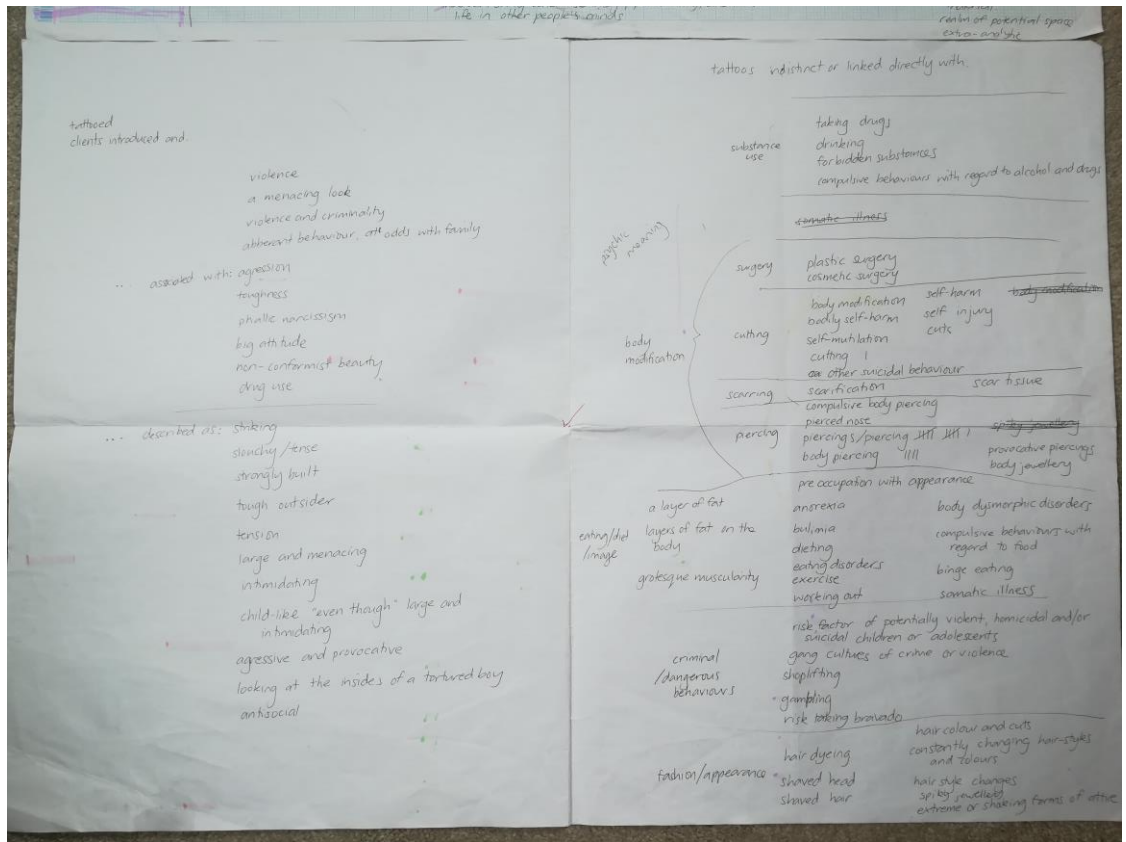 life in other people's minds
realm of potential space
extra-analytic
tattooed
clients introduced and.
violence
a menacing look
violence and criminality
abherent behaviour, at odds with family
... associated with: agression
toughness
phallic narcissism
big attitude
non-conformist beauty
drug use
... described as: striking
slouchy/tense
strongly built
tough outsider
tension
large and menacing
intimidating
child-like "even though" large and
intimidating
agressive and provocative
looking at the insides of a tortured boy
antisocial
tattoos indistinct or linked directly with.
substance
use
taking drugs
drinking
forbidden substances
compulsive behaviours with regard to alcohol and drugs
somatic illness
psychic
meaning
body
modification
surgery
plastic surgery
cosmetic surgery
cutting
body modification self-harm body modification
bodily self-harm self injury
self-mutilation cuts
cutting
other suicidal behaviour
scarring
scarification scar tissue
piercing
compulsive body piercing
pierced nose
piercings/piercing spiky jewellery
body piercing provocative piercings
body jewellery
pre occupation with appearance
eating/diet
/image
a layer of fat
layers of fat on the
body
grotesque muscularity
anorexia body dysmorphic disorders
bulimia compulsive behaviours with
regard to food
dieting
eating disorders binge eating
exercise
working out somatic illness
criminal
/dangerous
behaviours
risk factor of potentially violent, homicidal and/or
suicidal children or adolescents
gang cultures of crime or violence
shoplifting
gambling
risk taking bravado
fashion/appearance
hair colour and cuts
hair dyeing constantly changing hair-styles
and colours
shaved head hair style changes
shaved hair spiky jewellery
extreme or shocking forms of attire